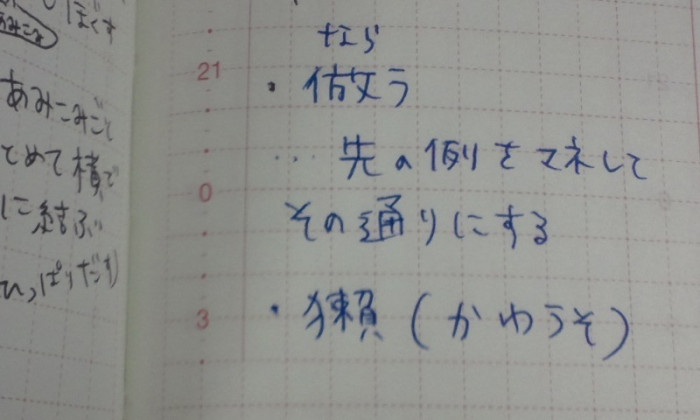 ほぐす
あみこみごと
とめて横で
に結ぶ
ひっぱりだす
なら
21
・倣う
… 先の例をマネして
0
その通りにする
3
・獺(かわうそ)